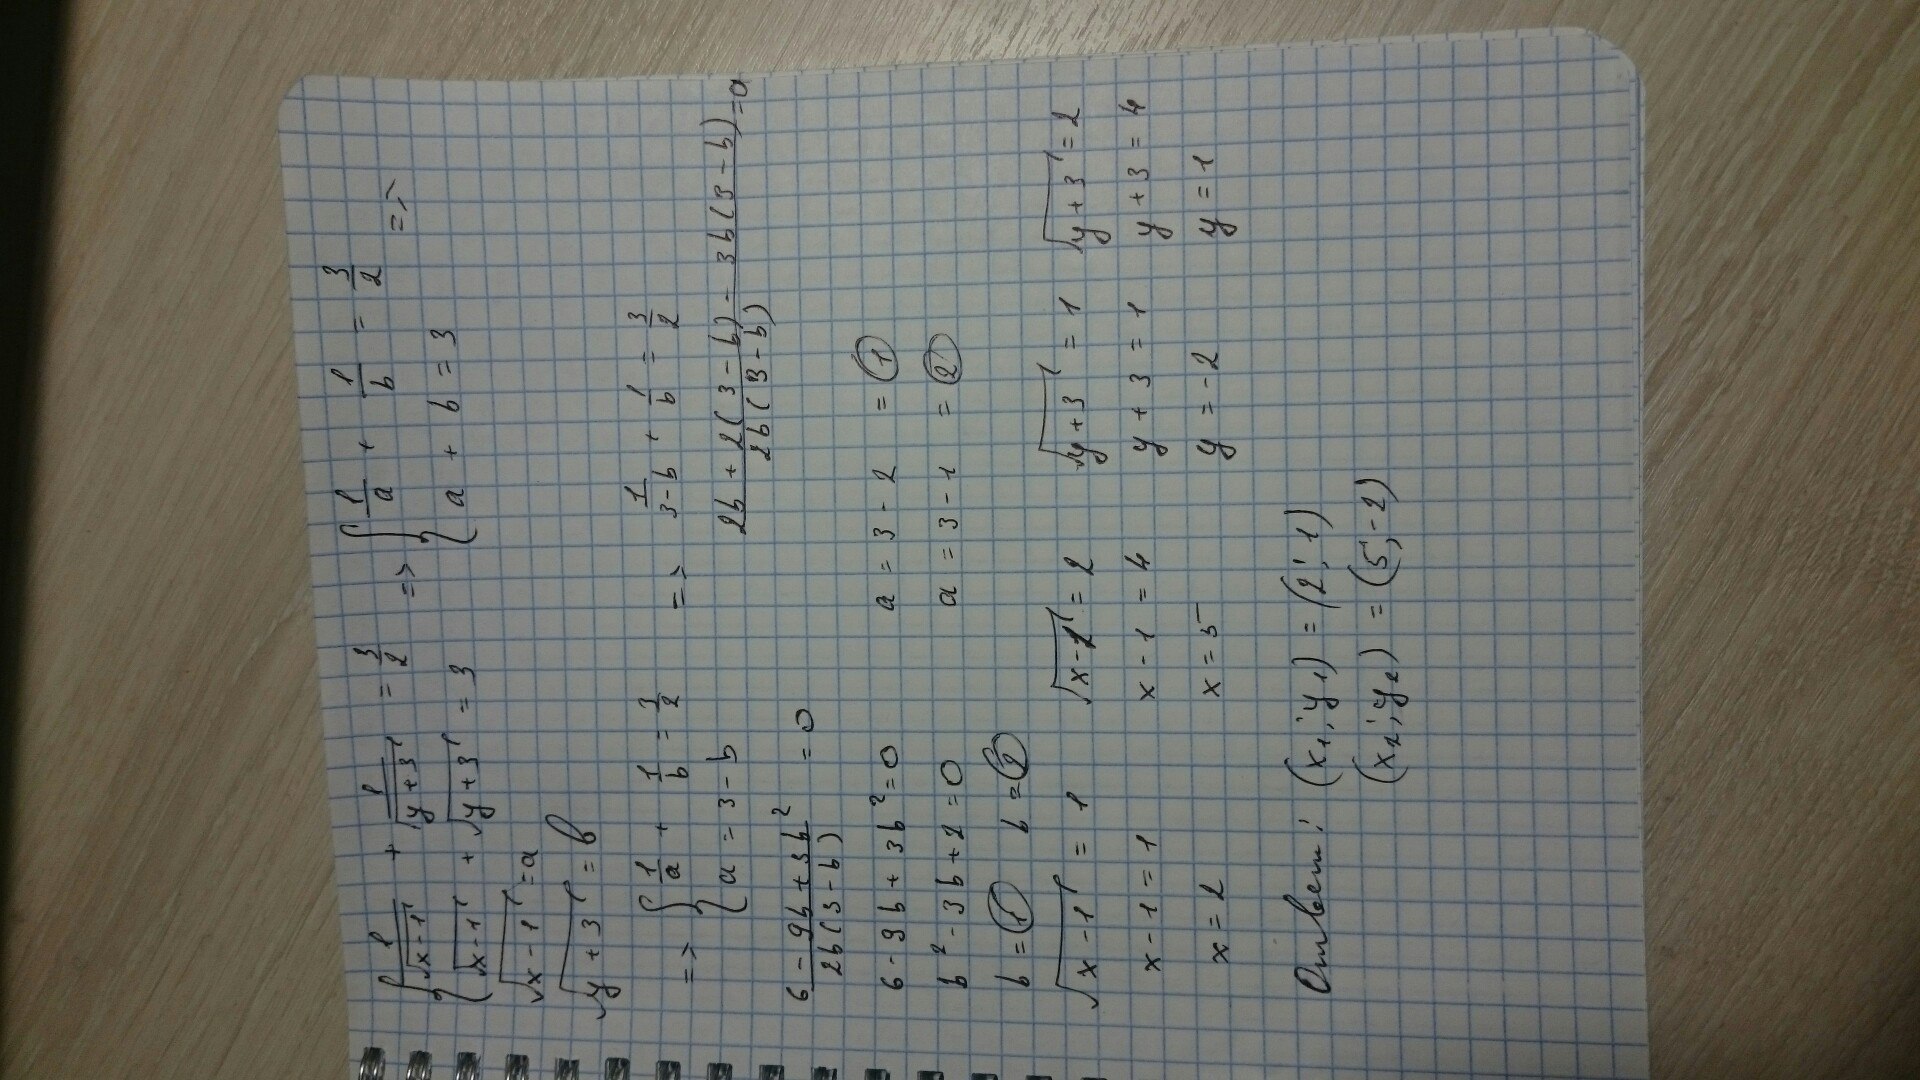 { 1/√(x-1) + 1/√(y+3) = 3/2 => { 1/a + 1/b = 3/2 =>
{ √(x-1) + √(y+3) = 3 { a + b = 3
√(x-1) = a
√(y+3) = b
=> { 1/a + 1/b = 3/2 => 1/(3-b) + 1/b = 3/2
{ a = 3-b (2b + 2(3-b) - 3b(3-b))/(2b(3-b)) = 0
(6 - 9b + 3b²)/(2b(3-b)) = 0
6 - 9b + 3b² = 0 a = 3 - 2 = 1
b² - 3b + 2 = 0 a = 3 - 1 = 2
b = 1 b = 2
√(x-1) = 1 √(x-1) = 2 √(y+3) = 1 √(y+3) = 2
x - 1 = 1 x - 1 = 4 y + 3 = 1 y + 3 = 4
x = 2 x = 5 y = -2 y = 1
Ответ: (x₁; y₁) = (2; 1)
(x₂; y₂) = (5; -2)